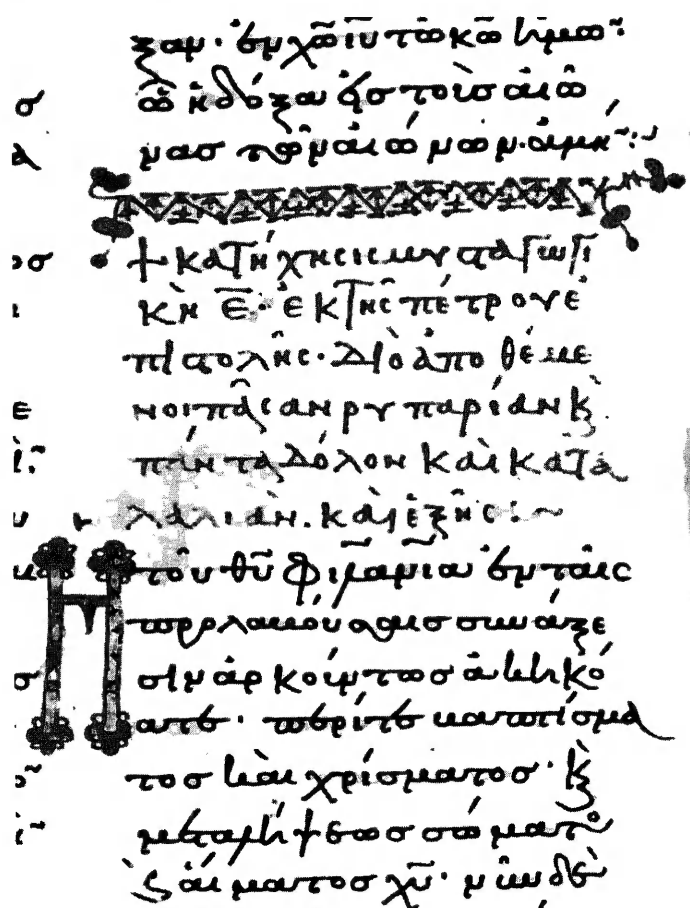 ξαν· ἐν χω̅ ιυ̅ τῶ κω̅ ἡμῶ̅·
ὧ ἡ δόξα εἰς τοὺς αἰῶ
νας τῶν αἰώνων· ἀμήν:
+ κατήχησις μυσταγωγι
κὴ ε̅· ἐκ τῆς πέτρου ἐ
πιστολῆς· Διὸ ἀποθέμε
νοι πᾶσαν ρυπαρίαν κ̀
πάντα δόλον καὶ κατα
λαλιὰν. καὶ ἑξῆς:~
Η τοῦ θυ̅ φιλανια̅ ἐν ταῖς
προλαβούσαις συνάξε
σιν ἀρκούντως ἀκηκό
ατε· περίτε βαπτίσμα
τος καὶ χρίσματος· κ̀
μεταλήψεως σώματο
ς κ̀ αἵματος χυ̅· νῦν δὲ